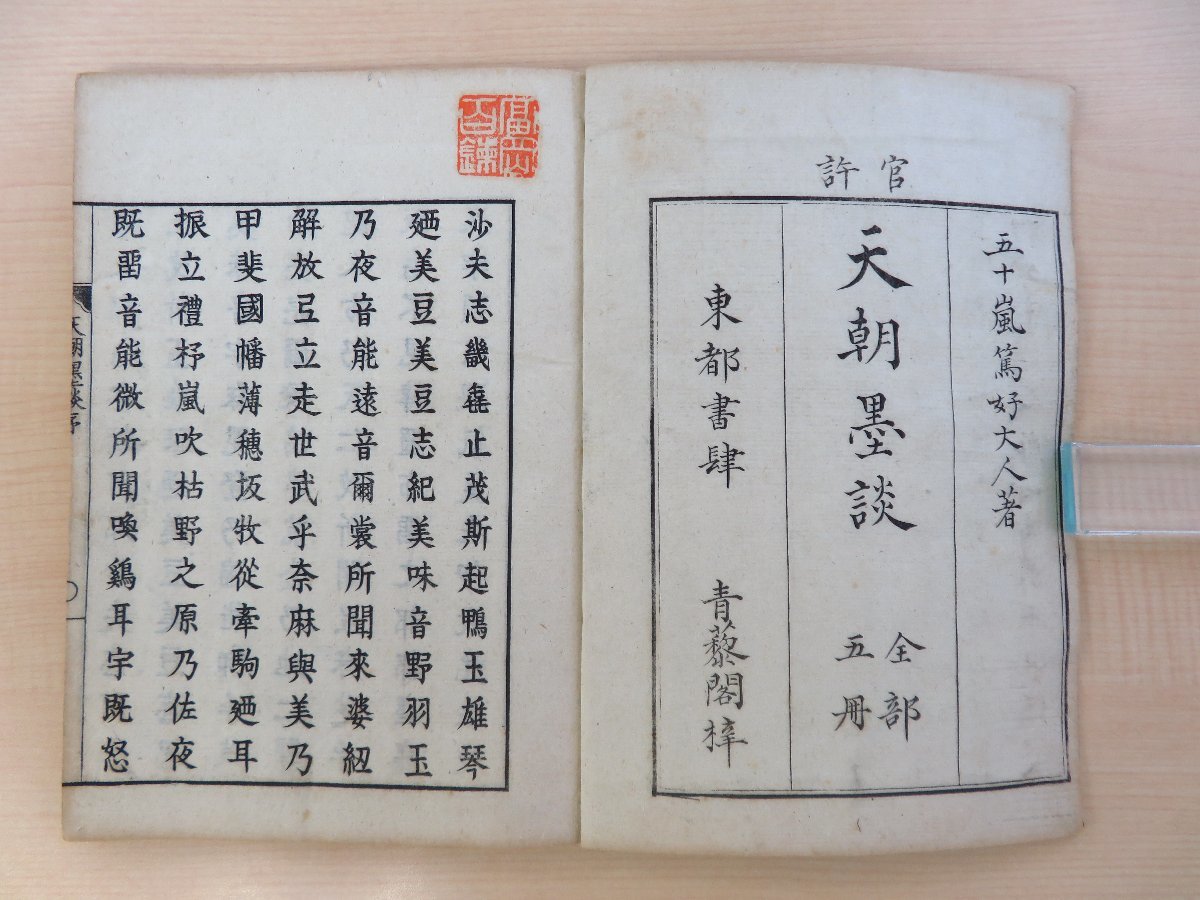 官許
五十嵐篤好大人著
天朝墨談 全部
五冊
東都書肆 青藜閣梓
沙夫志畿毳止茂斯起鴨玉雄琴
廼美豆美豆志紀美味音野羽玉
乃夜音能遠音爾裳所聞來婆紐
解放弖立走世武乎奈麻與美乃
甲斐國幡薄穗坂牧從牽駒廼耳
振立禮杼嵐吹枯野之原乃佐夜
既畱音能微所聞喚鷄耳宇既怒
天朝墨談序